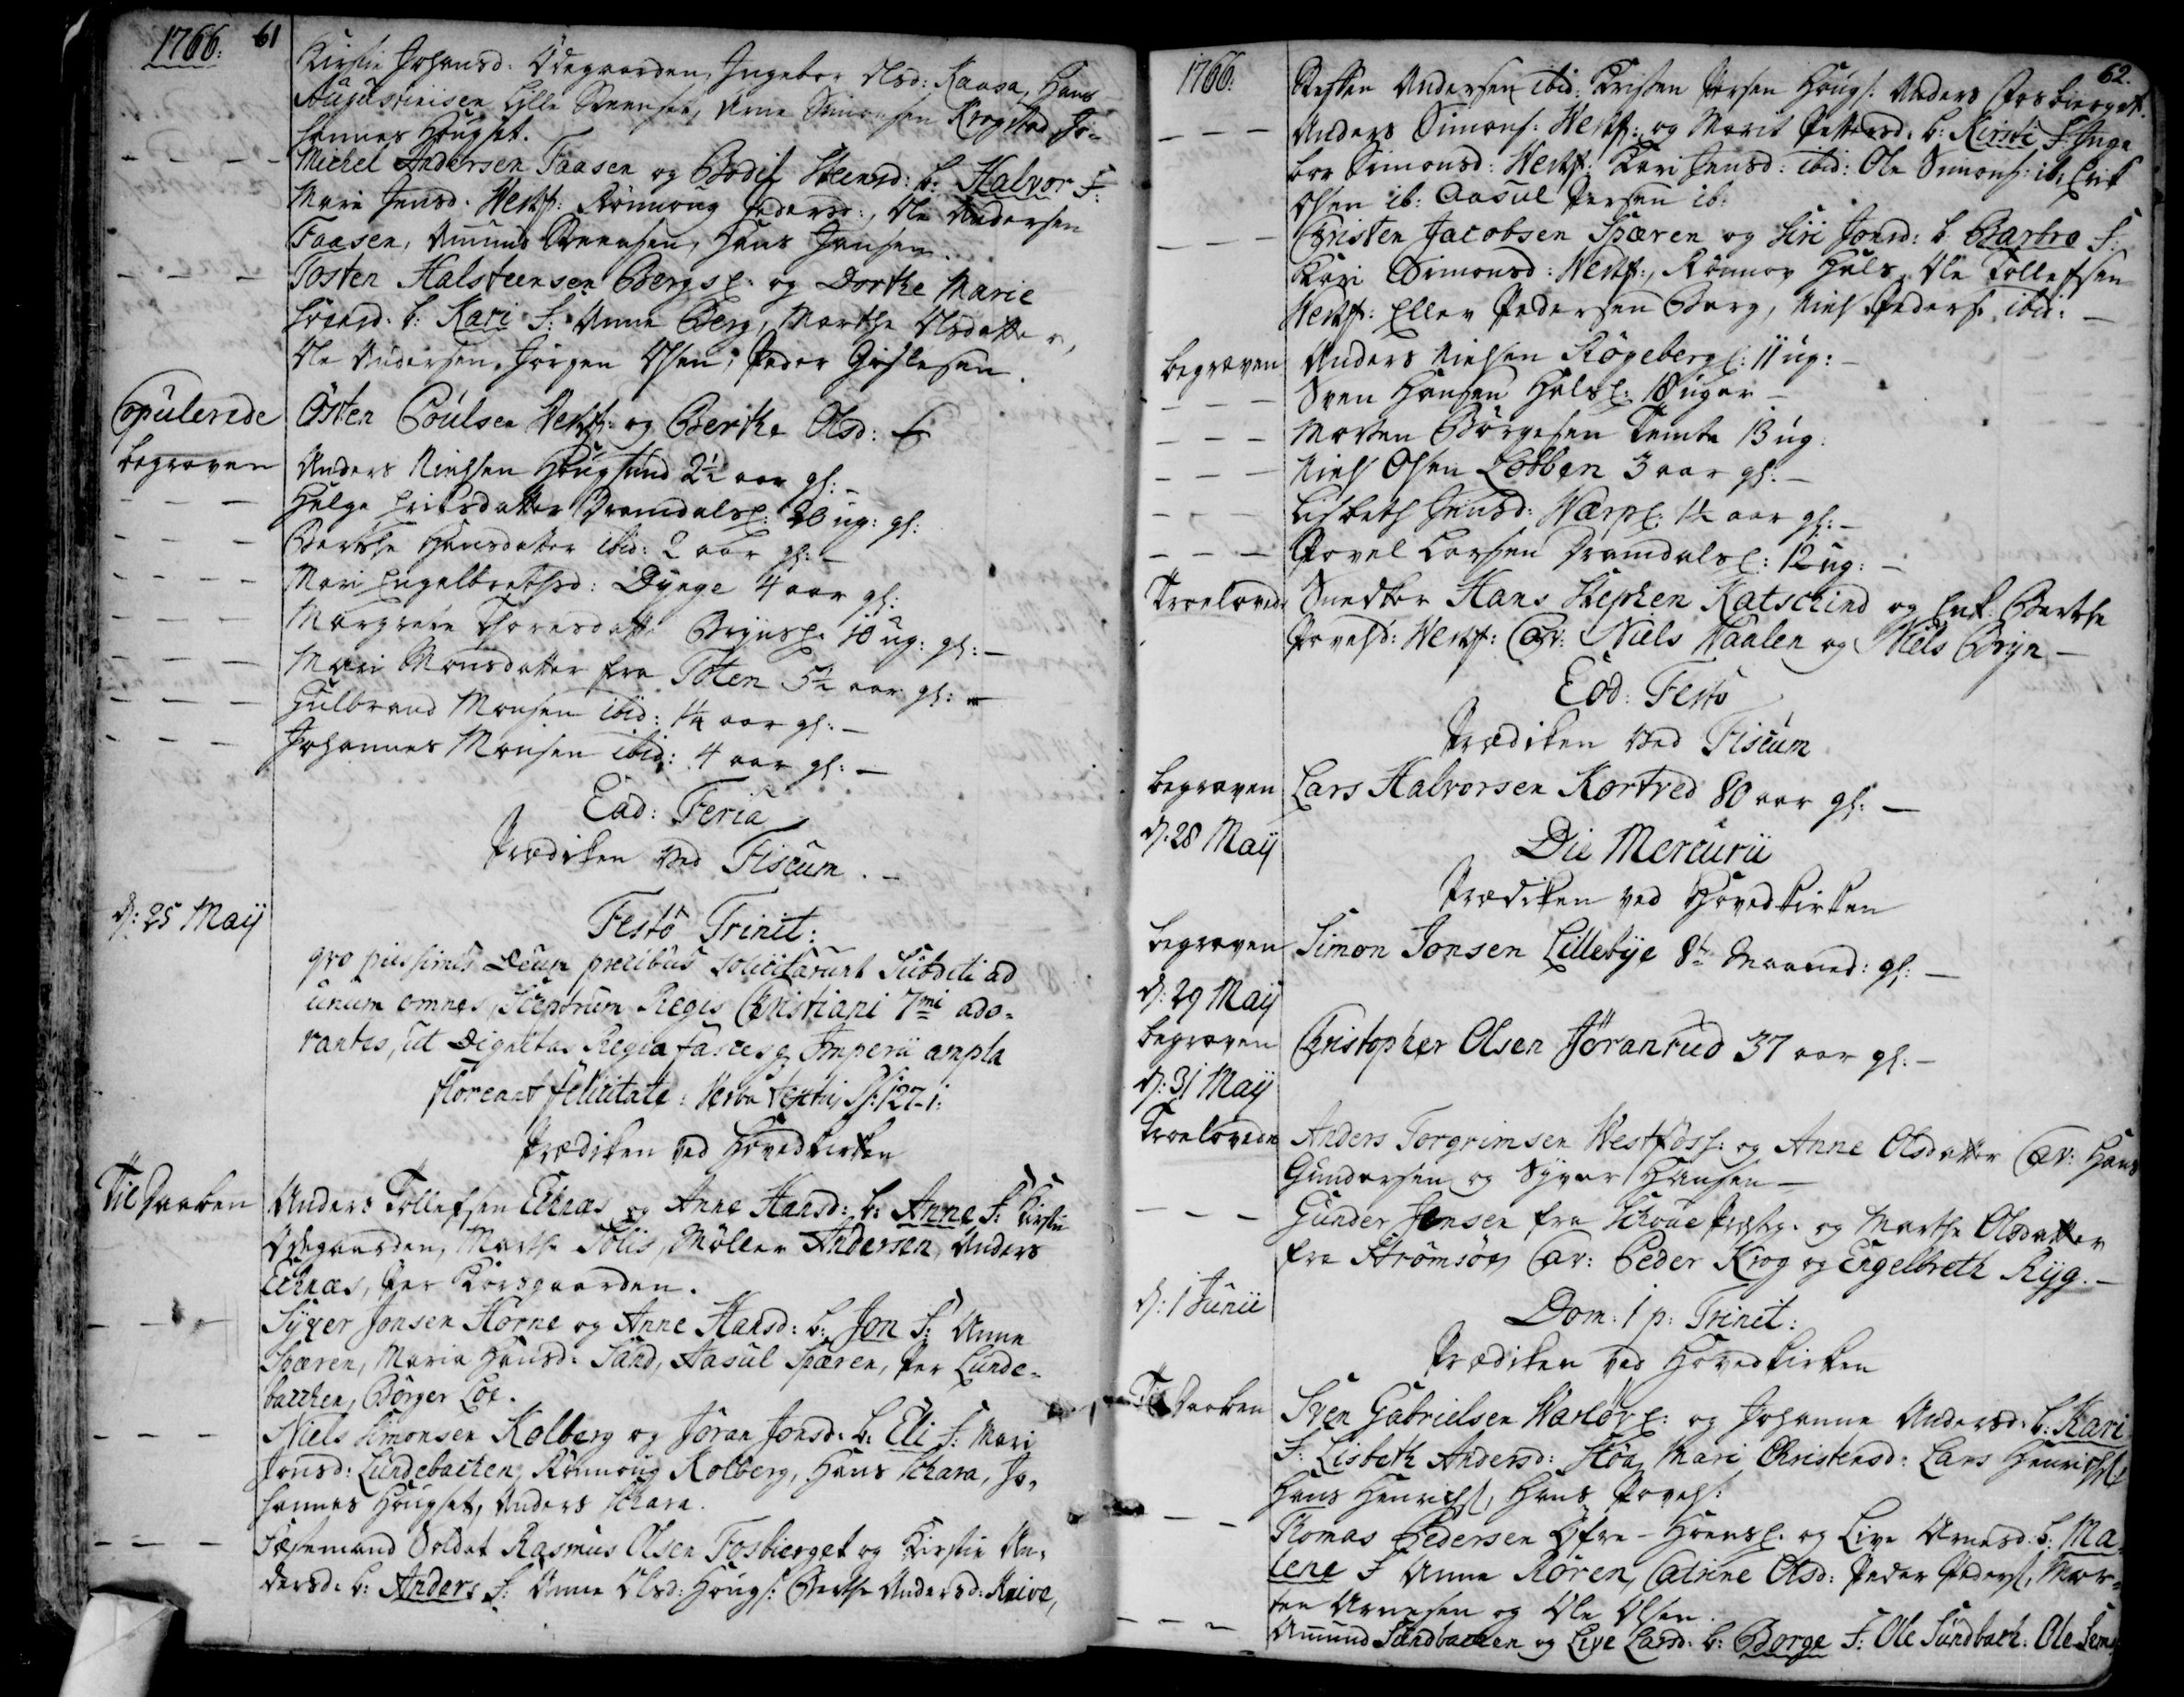 1766. 61
Kirstie Johansd. Ödegaarden, Ingebor Olsd: Kaasa, Hans
Augustinisen Lille Steenset, Arne Simonsen Krogstad Jo-
hannes Hougset.
Michel Andersen Faasen og Bodil Steensd: b: Halvor F:
Mari Jensd. Westf: Rönnoug Pedersd:, Ole Andersen
Faasen, Amund Steensen, Hans Jansen.
Tosten Halsteensen Bergsf. og Dorthe Marie
b: Kari F: Anne Berg, Marthe Olsdatter,
Ole Andersen, Jörgen Olsen, Peder Gislesen.
Copulerede Östen Poulsen Westf: og Berthe Olsd:
begraven Anders Nielsen Hougsund 2½ aar gl:
Helge Eriksdatter Dramdalsf: 20 ug: gl:
Berthe Hansdatter ibid: 2 aar gl:
Mari Engelbrethsd: Dynge 4 aar gl:
Margrete Thoresdatter Brynsf. 10 ug: gl:
Mari Monsdatter fra Toten 5½ aar gl:
Gulbrand Monsen ibid: 1¼ aar gl:
Johannes Monsen ibid: 4 aar gl:
Ead: Feria
Prædiken ved Fiscum.
d: 25 Maij Festo Trinit:
qvo piissimis Deum precibus soliciterunt Subditi ad
unum omnes, Sceptrum Regis Christiani 7mi ado-
rantes, ut Dignitas Regia fasces Imperii ampla
floreant felicitate: Verba textus Ps: 127-1:
Prædiken ved Hovedkirken
Til Daaben Anders Tollefsen Eknæs og Anne Hansd: b: Anne F: Kirstie
Ödegaarden, Marthe Tolis, Möller Andersen, Anders
Eknæs, Per Korsgaarden.
Syver Jonsen Horne og Anne Hansd: b: Jon F: Anne
Spæren, Maria Hansd: Sand, Aasul Spæren, Per Lunde-
bakken, Börger Loe.
Niels Simonsen Kolberg og Jöran Jonsd. b: Eli F: Mari
Jonsd: Lundebachen, Rönnoug Kolberg, Hans Skara, Jo-
hannes Hougset, Anders Skara.
Soldat Rasmus Olsen Fosbierget og Kirstie An-
dersd. b: Anders F: Anne Olsd: Hougs: Berthe Andersd: Knive,
1766. 62.
Steffen Andersen ibid: Cristen Persen Hougs: Anders Fosbierget.
Anders Simons: Westf: og Marit Pettersd. b: Kirsti F: Inge
bor Simonsd: Westf: Kari Jensd: ibid: Ole Simons: ib: Erik
Olsen ib: Aasul Persen ib:
Christen Jacobsen Spæren og Siri Jonsd: b. Barbro F:
Kari Simonsd: Westf:, Rönnov Hals, Ole Tollefsen
Westf: Ellev Pedersen Berg, Niels Peders: ibid:
begraven Anders Nielsen Rögebergf: 11 ug:
Sven Hansen Halsf: 18 uger
Morten Börgesen Temte 13 ug:
Niels Olsen Lobben 3 aar gl:
Lisbeth Jensd: Warpf: 1½ aar gl:
Povel Larsen Dramdalsf: 12 ug:
Troelovede Snedker Hans Stephen Katschind og Enk: Berthe
Povelsd: Westf: Cav: Niels Waalen og Niels Bryn
Eod: Festo
Prædiken ved Fiscum
begraven Lars Halvorsen Kortved 80 aar gl:
d: 28 Maij Die Mercurii
Prædiken ved Hovedkirken
begraven Simon Jonsen Lillebye 8½ Maaned: gl:
d: 29 Maij
begraven Christopher Olsen Jöranrud 37 aar gl:
d: 31 Maij
Troelovede Anders Torgrimsen Westfoss: og Anne Olsdatter Cav: Hans
Gundersen og Syver Hansen
Gunder Jensen fra Schoue Præstg. og Marthe Olsdatter
fra Strömsöe, Cav: Peder Krog og Engelbreth Ryg.
d: 1 Junii Dom: 1 p: Trinit:
Prædiken ved Hovedkirken
Til Daaben Sven Gabrielsen Warlöf: og Johanne Andersd. b: Kari
F: Lisbeth Andersd: Stöa, Mari Christensd: Lars Henrichs:
Hans Henrichs:, Hans Povels:
Thomas Pedersen Öfre-Hoensf. og Live Arnesd. b: Ma-
lene F Anne Rören, Catrine Olsd: Peder Peders:, Mor-
ten Arnesen og Ole Olsen.
Amund Sandbacken og Live Larsd: b: Borge F: Ole Sundbach: Ole Sem